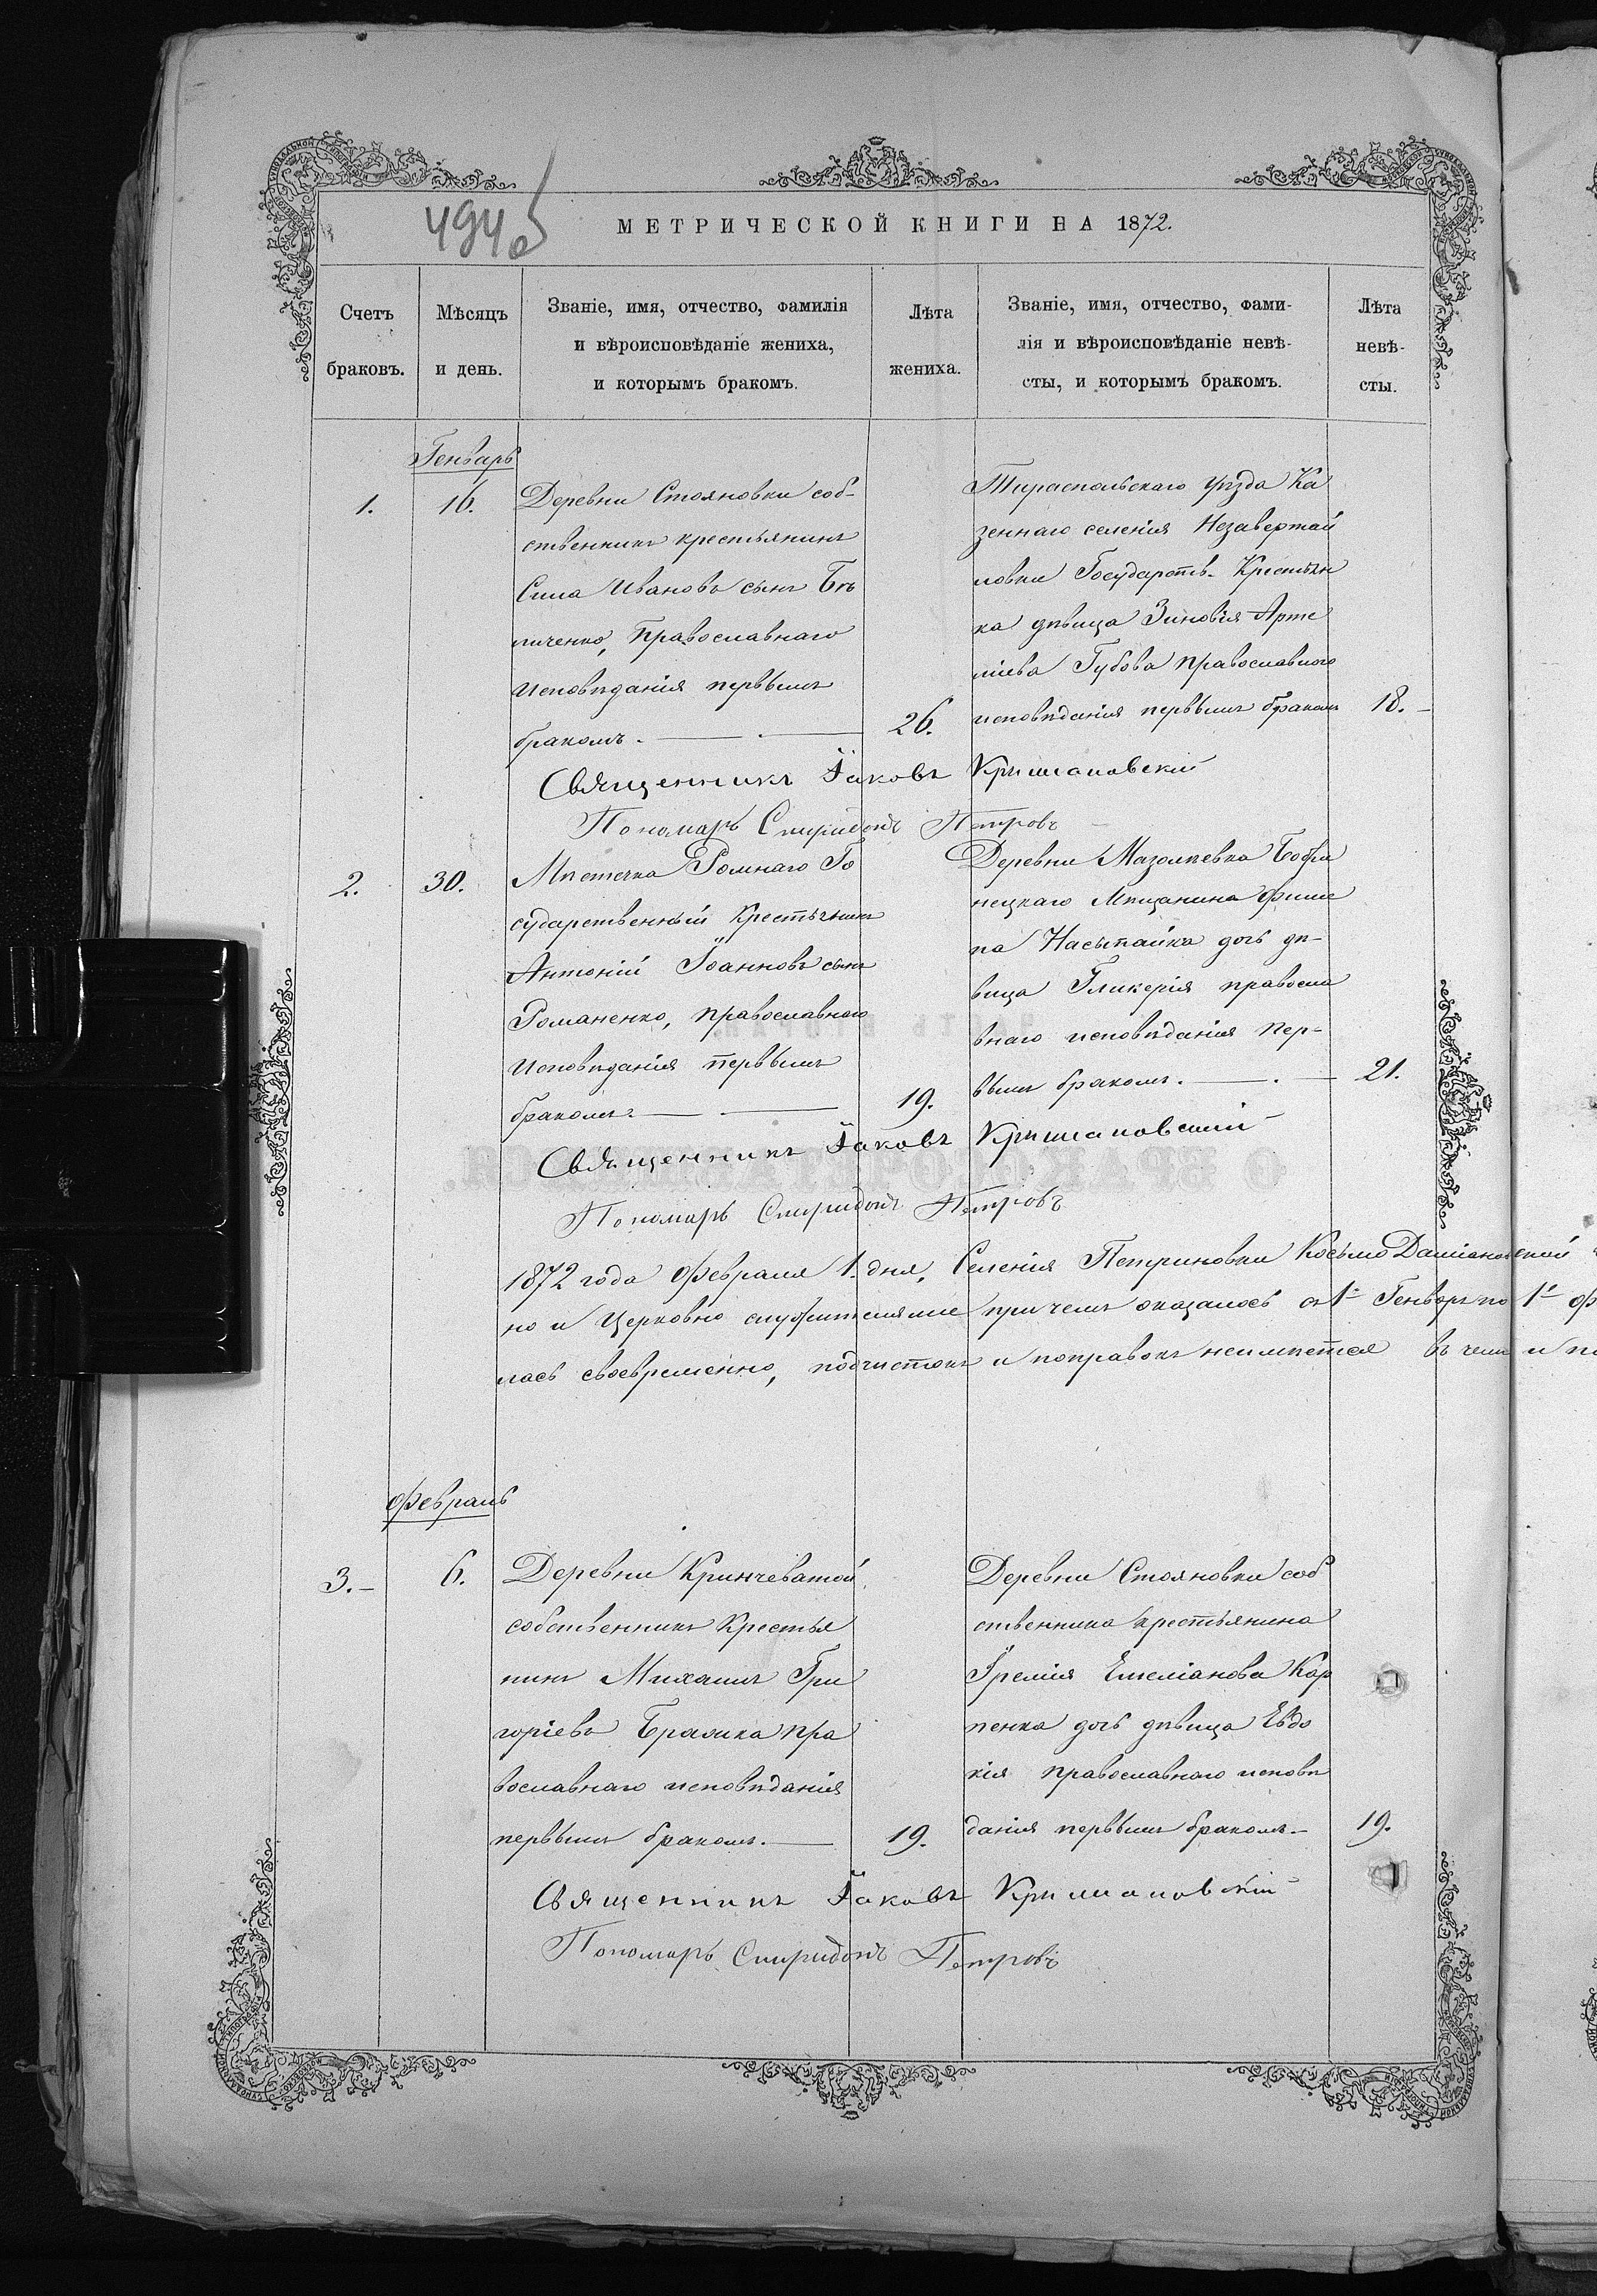 494об
МЕТРИЧЕСКОЙ КНИГИ НА 1872.
Счетъ браковъ.
Мѣсяцъ и день.
Званіе, имя, отчество, фамилія
и вѣроисповѣданіе жениха,
и которымъ бракомъ.
Лѣта жениха.
Званіе, имя, отчество, фами-
лія и вѣроисповѣданіе невѣ-
сты, и которымъ бракомъ.
Лѣта невѣ-
сты.
Генварь
1.
16.
Деревни Стояновки соб-
ственникъ крестьянинъ
Сила Ивановъ сынъ Бѣ
личенко, Православнаго
исповѣданія первымъ
бракомъ.
26.
Тираспольскаго уѣзда Ка
зеннаго селенія Незавертай
ловки Государств. Крестьян
ка дѣвица Зиновія Арте
міева Губова православного
исповѣданія первымъ бракомъ
18.
Священникъ Іаковъ Кришановскій
Пономарь Спиридонъ Петровъ
2.
30.
Мѣстечка Ромнаго Го
сударственный Крестьянинъ
Антоній Іоанновъ сынъ
Романенко, православнаго
исповѣданія первымъ
бракомъ.
19.
Деревни Мазолкевка Бобри
нецкаго Мѣщанина Фили
па Насыпайка дочь дѣ-
вица Гликерія правосла
внаго исповѣданія пер-
вымъ бракомъ.
21.
Священникъ Іаковъ Кришановскій
Пономарь Спиридонъ Петровъ
1872 года Февраля 1. дня, Селенія Петриновки Косьмо Даміановской
но и Церковно служителями при чемъ оказалось съ 1º Генваря по 1º Ф
лась своевременно, подчистокъ и поправокъ неимѣется въ чемъ и по
Февраль
3.
6.
Деревни Криничеватой
собственникъ Крестья
нинъ Михаилъ Гри
горіевъ Бралика пра
вославнаго исповѣданія
первымъ бракомъ.
19.
Деревни Стояновки соб
ственника крестьянина
Іремія Емеліанова Кар
пенка дочь дѣвица Евдо
кія православнаго исповѣ
данія первымъ бракомъ
19.
Священникъ Іаковъ Кришановскій
Пономарь Спиридонъ Петровъ